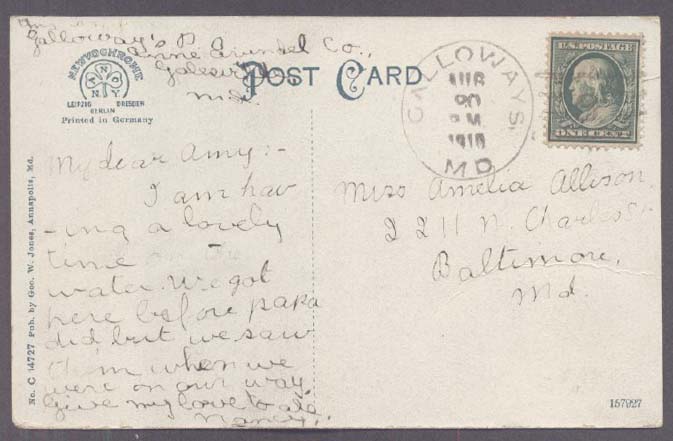 Galloway's P
Anne Arundel Co.,
Galesville
Md.
NEWVOCHROME
T A N O
N.Y.
LEIPZIG DRESDEN
BERLIN
Printed in Germany
POST CARD
GALLOWAYS,
AUG
20
PM
1910
MD
U.S. POSTAGE
ONE CENT
My dear Amy:-
I am hav
-ing a lovely
time on the
water. We got
here before papa
did but we saw
them when we
were on our way
Give my love to all
Nancy.
Miss Amelia Allison
2211 N. Charles St
Baltimore,
Md.
No. C 14727 Pub. by Geo. W. Jones, Annapolis, Md.
157927